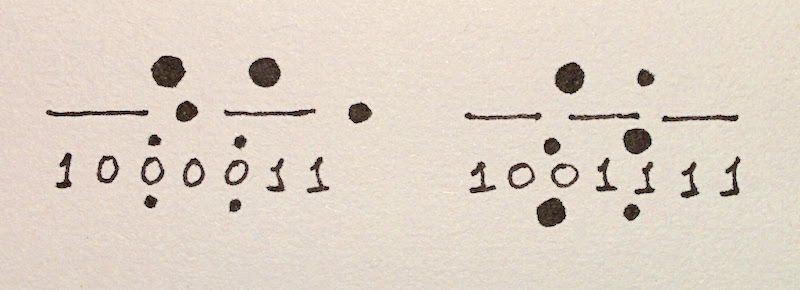 — • — • — — —
1000011 1001111